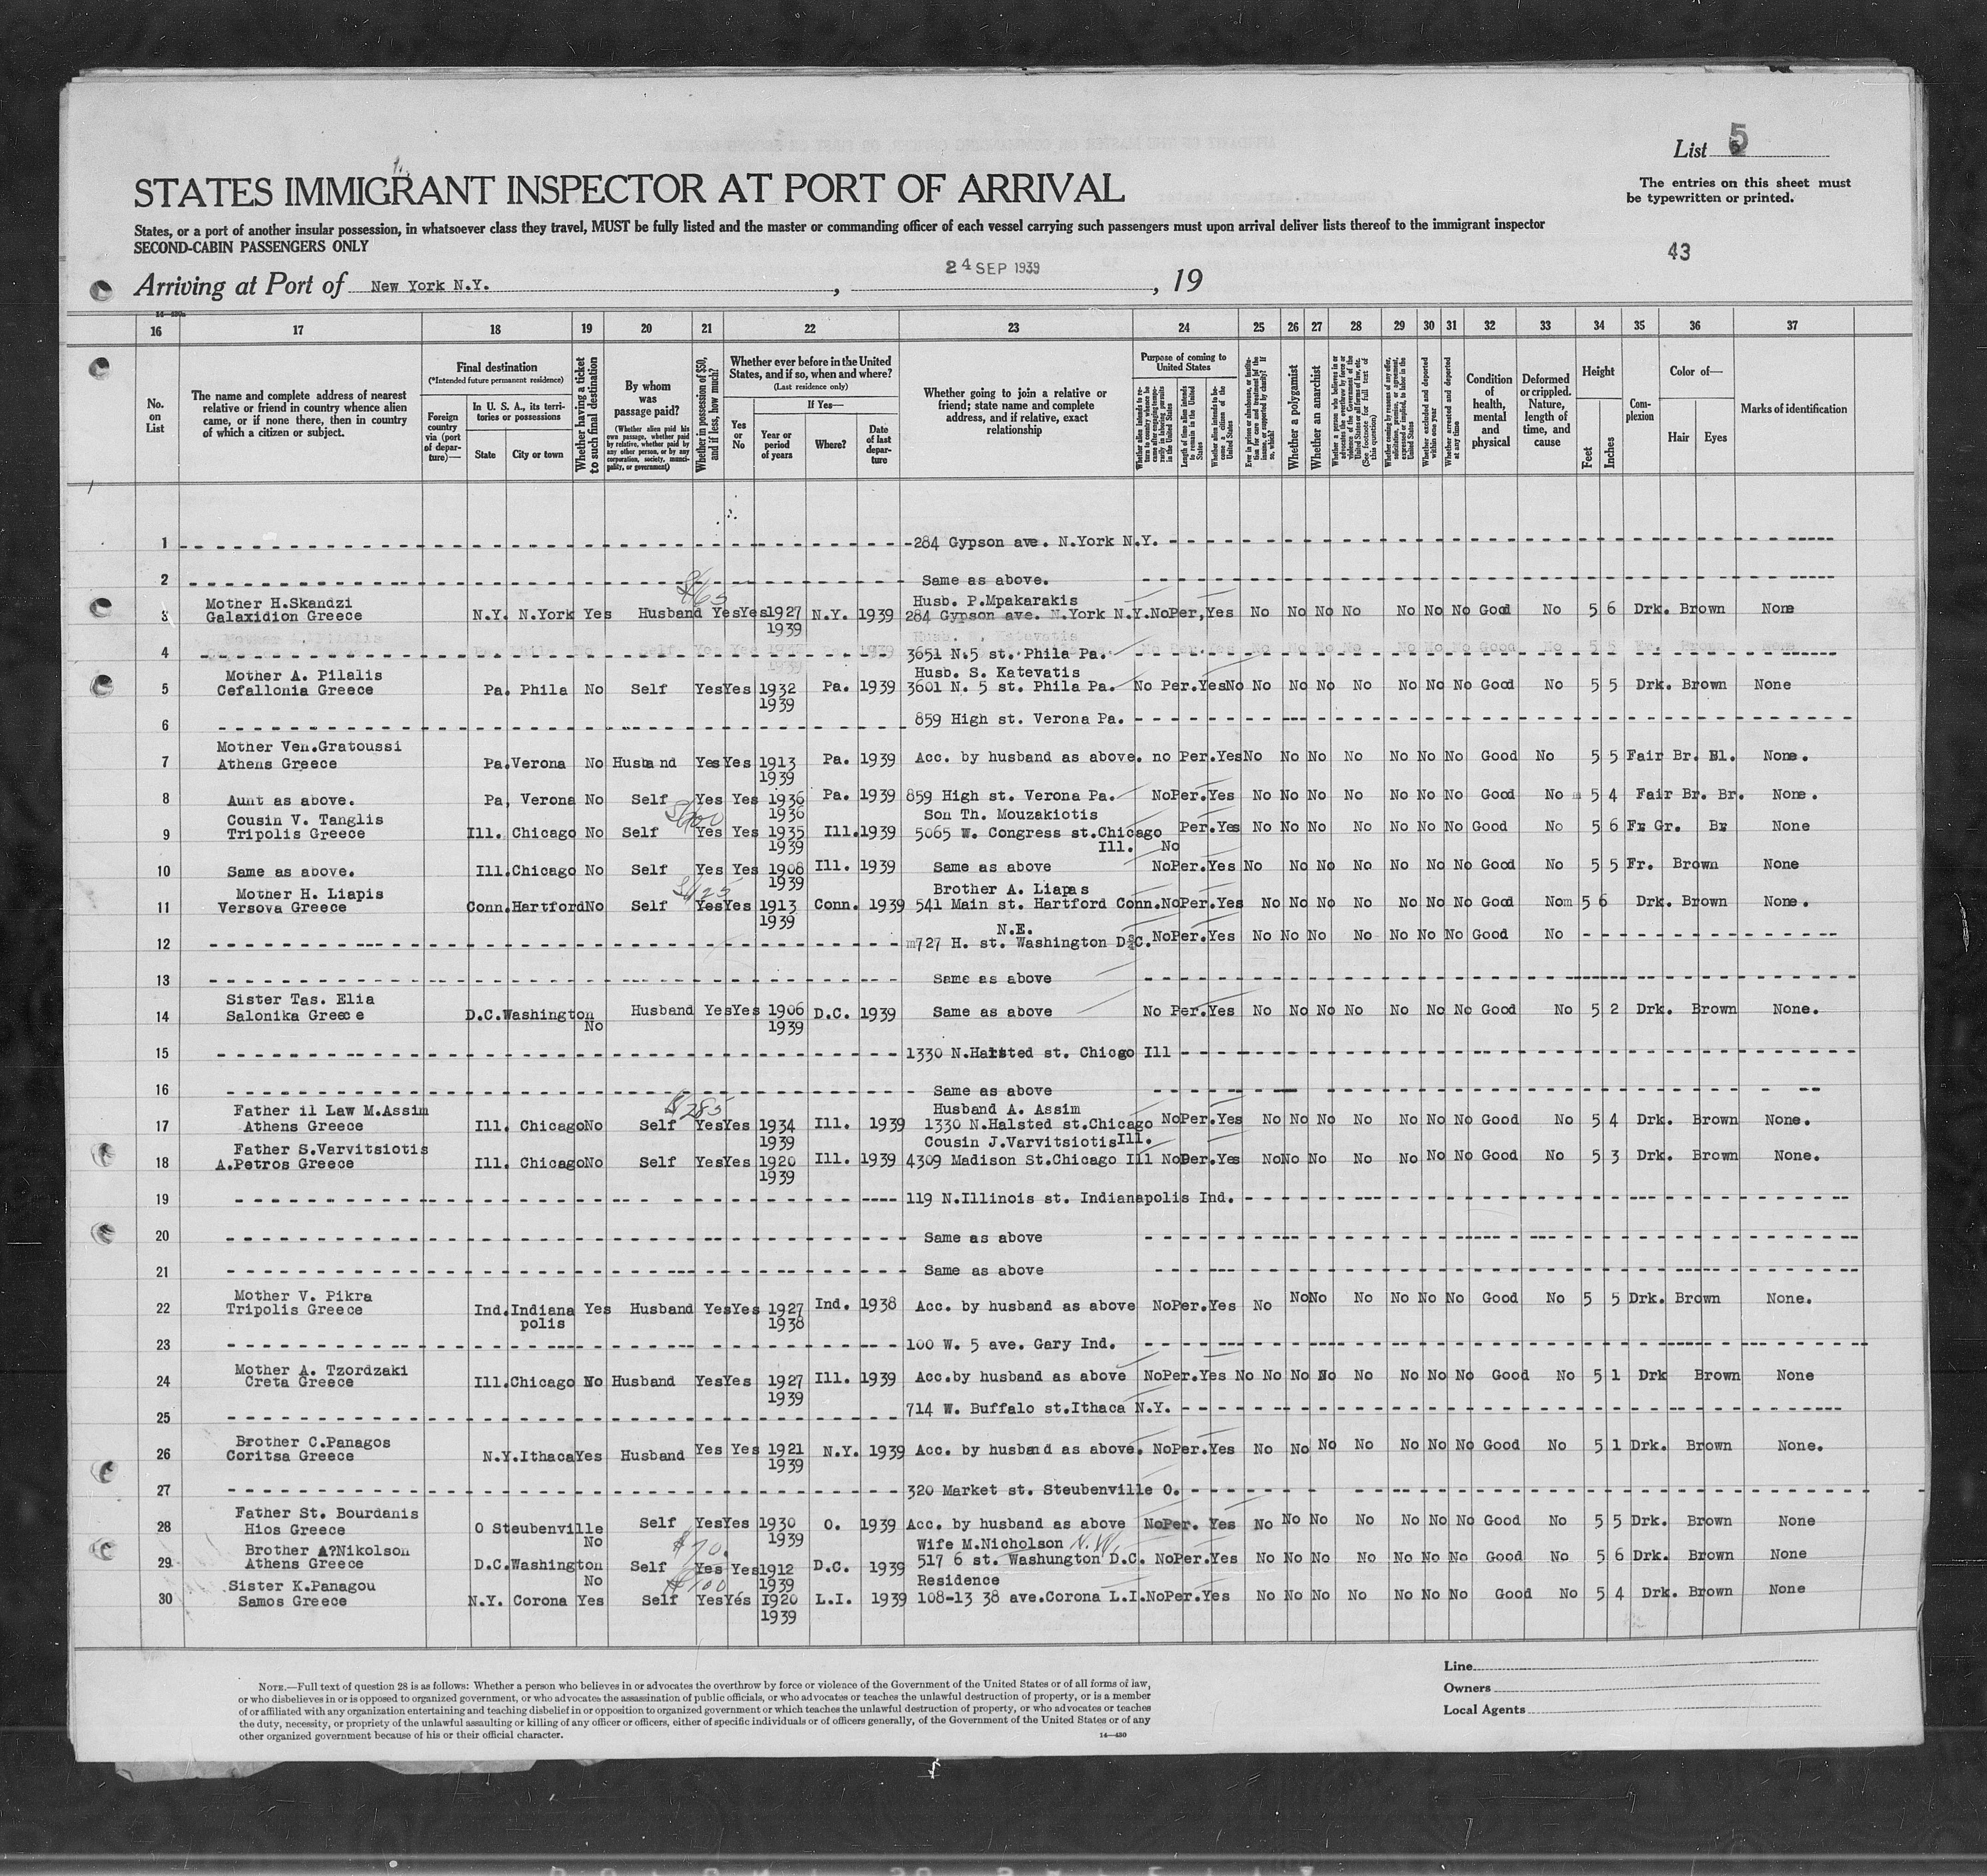 List 5
STATES IMMIGRANT INSPECTOR AT PORT OF ARRIVAL
The entries on this sheet must
be typewritten or printed.
States, or a port of another insular possession, in whatsoever class they travel, MUST be fully listed and the master or commanding officer of each vessel carrying such passengers must upon arrival deliver lists thereof to the immigrant inspector
SECOND-CABIN PASSENGERS ONLY
43
Arriving at Port of New York N.Y. , 24 SEP 1939 , 19
16 17 18 19 20 21 22 23 24 25 26 27 28 29 30 31 32 33 34 35 36 37
No. on List
The name and complete address of nearest relative or friend in country whence alien came, or if none there, then in country of which a citizen or subject.
Final destination
(*Intended future permanent residence)
Foreign country via (port of departure)—
In U. S. A., its territories or possessions
State City or town
Whether having a ticket to such final destination
By whom was passage paid?
(Whether alien paid his own passage, whether paid by relative, whether paid by any other person, or by any corporation, society, municipality, or government)
Whether in possession of $50, and if less, how much?
Whether ever before in the United States, and if so, when and where?
(Last residence only)
Yes or No
If Yes—
Year or period of years
Where?
Date of last departure
Whether going to join a relative or friend; state name and complete address, and if relative, exact relationship
Purpose of coming to United States
Length of time alien intends to remain in the United States
Whether alien intends to become a citizen of the United States
Whether a polygamist
Whether an anarchist
(See footnote for full text of this question)
Whether excluded and deported within one year
Whether arrested and deported at any time
Condition of health, mental and physical
Deformed or crippled. Nature, length of time, and cause
Height
Feet Inches
Complexion
Color of—
Hair Eyes
Marks of identification
1 284 Gypson ave. N.York N.Y.
2 Same as above.
$65
Mother H.Skandzi Husb. P.Mpakarakis
3 Galaxidion Greece N.Y. N.York Yes Husband Yes Yes 1927 N.Y. 1939 284 Gypson ave. N.York N.Y. No Per, Yes No No No No No No No Good No 5 6 Drk. Brown None
1939
4 3651 N.5 st. Phila Pa.
Mother A. Pilalis Husb. S. Katevatis
5 Cefallonia Greece Pa. Phila No Self Yes Yes 1932 Pa. 1939 3601 N. 5 st. Phila Pa. No Per. Yes No No No No No No No No Good No 5 5 Drk. Brown None
1939
6 859 High st. Verona Pa.
Mother Ven.Gratoussi
7 Athens Greece Pa. Verona No Husband Yes Yes 1913 Pa. 1939 Acc. by husband as above. no Per. Yes No No No No No No No Good No 5 5 Fair Br. Bl. None.
1939
8 Aunt as above. Pa, Verona No Self Yes Yes 1936 Pa. 1939 859 High st. Verona Pa. No Per. Yes No No No No No No No Good No 5 4 Fair Br. Br. None.
1936
Cousin V. Tanglis Son Th. Mouzakiotis
9 Tripolis Greece Ill. Chicago No Self Yes Yes 1935 Ill. 1939 5065 W. Congress st.Chicago Per. Yes No No No No No No No Good No 5 6 Fr Gr. Br None
1939 Ill. No
10 Same as above. Ill. Chicago No Self Yes Yes 1908 Ill. 1939 Same as above No Per. Yes No No No No No No No Good No 5 5 Fr. Brown None
1939
$125
Mother H. Liapis Brother A. Liapas
11 Versova Greece Conn. Hartford No Self Yes Yes 1913 Conn. 1939 541 Main st. Hartford Conn. No Per. Yes No No No No No No No Good No 5 6 Drk. Brown None.
1939
N.E.
12 727 H. st. Washington D.C. No Per. Yes No No No No No No No Good No
13 Same as above
Sister Tas. Elia
14 Salonika Greece D.C. Washington Husband Yes Yes 1906 D.C. 1939 Same as above No Per. Yes No No No No No No No Good No 5 2 Drk. Brown None.
No 1939
15 1330 N.Halsted st. Chicago Ill
16 Same as above
$285
Father il Law M.Assim Husband A. Assim
17 Athens Greece Ill. Chicago No Self Yes Yes 1934 Ill. 1939 1330 N.Halsted st.Chicago No Per. Yes No No No No No No No Good No 5 4 Drk. Brown None.
1939 Ill.
Father S.Varvitsiotis Cousin J.Varvitsiotis
18 A.Petros Greece Ill. Chicago No Self Yes Yes 1920 Ill. 1939 4309 Madison St.Chicago Ill No Per. Yes No No No No No No No Good No 5 3 Drk. Brown None.
1939
19 119 N.Illinois st. Indianapolis Ind.
20 Same as above
21 Same as above
Mother V. Pikra
22 Tripolis Greece Ind. Indiana Yes Husband Yes Yes 1927 Ind. 1938 Acc. by husband as above No Per. Yes No No No No No No No Good No 5 5 Drk. Brown None.
polis 1938
23 100 W. 5 ave. Gary Ind.
Mother A. Tzordzaki
24 Creta Greece Ill. Chicago No Husband Yes Yes 1927 Ill. 1939 Acc.by husband as above No Per. Yes No No No No No No No No Good No 5 1 Drk Brown None
1939
25 714 W. Buffalo st.Ithaca N.Y.
Brother C.Panagos
26 Coritsa Greece N.Y. Ithaca Yes Husband Yes Yes 1921 N.Y. 1939 Acc. by husband as above. No Per. Yes No No No No No No No Good No 5 1 Drk. Brown None.
1939
27 320 Market st. Steubenville O.
Father St. Bourdanis
28 Hios Greece O Steubenville Self Yes Yes 1930 O. 1939 Acc. by husband as above No Per. Yes No No No No No No No Good No 5 5 Drk. Brown None
No 1939
$70.
Brother A?Nikolson Wife M.Nicholson N.W.
29 Athens Greece D.C. Washington Self Yes Yes 1912 D.C. 1939 517 6 st. Washungton D.C. No Per. Yes No No No No No No No Good No 5 6 Drk. Brown None
No 1939
$100
Sister K.Panagou Residence
30 Samos Greece N.Y. Corona Yes Self Yes Yés 1920 L.I. 1939 108-13 38 ave.Corona L.I. No Per. Yes No No No No No No No Good No 5 4 Drk. Brown None
1939
Line
Owners
Local Agents
NOTE.—Full text of question 28 is as follows: Whether a person who believes in or advocates the overthrow by force or violence of the Government of the United States or of all forms of law,
or who disbelieves in or is opposed to organized government, or who advocates the assassination of public officials, or who advocates or teaches the unlawful destruction of property, or is a member
of or affiliated with any organization entertaining and teaching disbelief in or opposition to organized government or which teaches the unlawful destruction of property, or who advocates or teaches
the duty, necessity, or propriety of the unlawful assaulting or killing of any officer or officers, either of specific individuals or of officers generally, of the Government of the United States or of any
other organized government because of his or their official character.
14—430